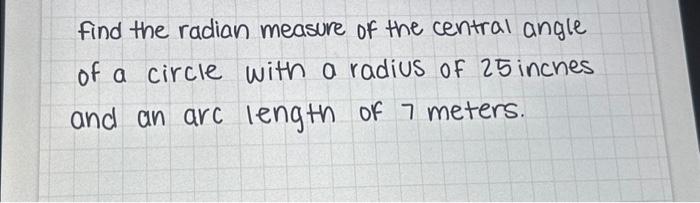 find the radian measure of the central angle
of a circle with a radius of 25 inches
and an arc length of 7 meters.